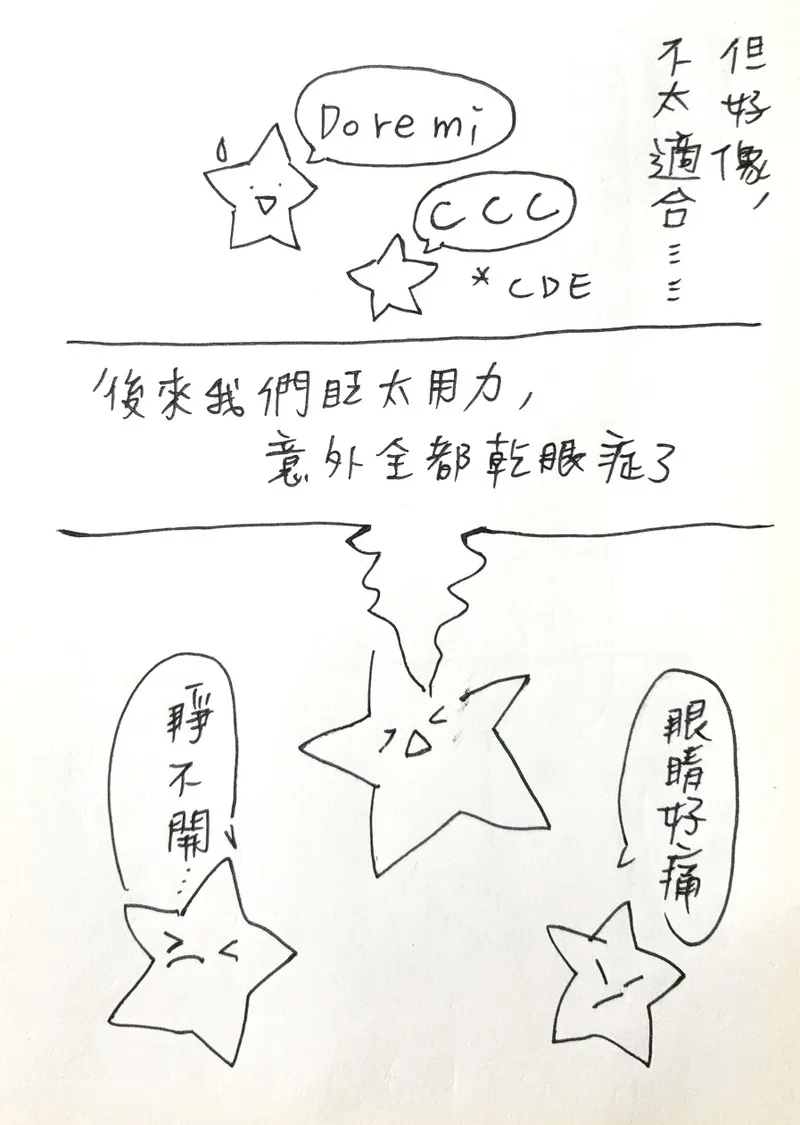 但好像，
不太適合……
Doremi
CCC
*CDE
後來我們旺太用力，
意外全都乾眼症了
眼睛好痛
睜不開…